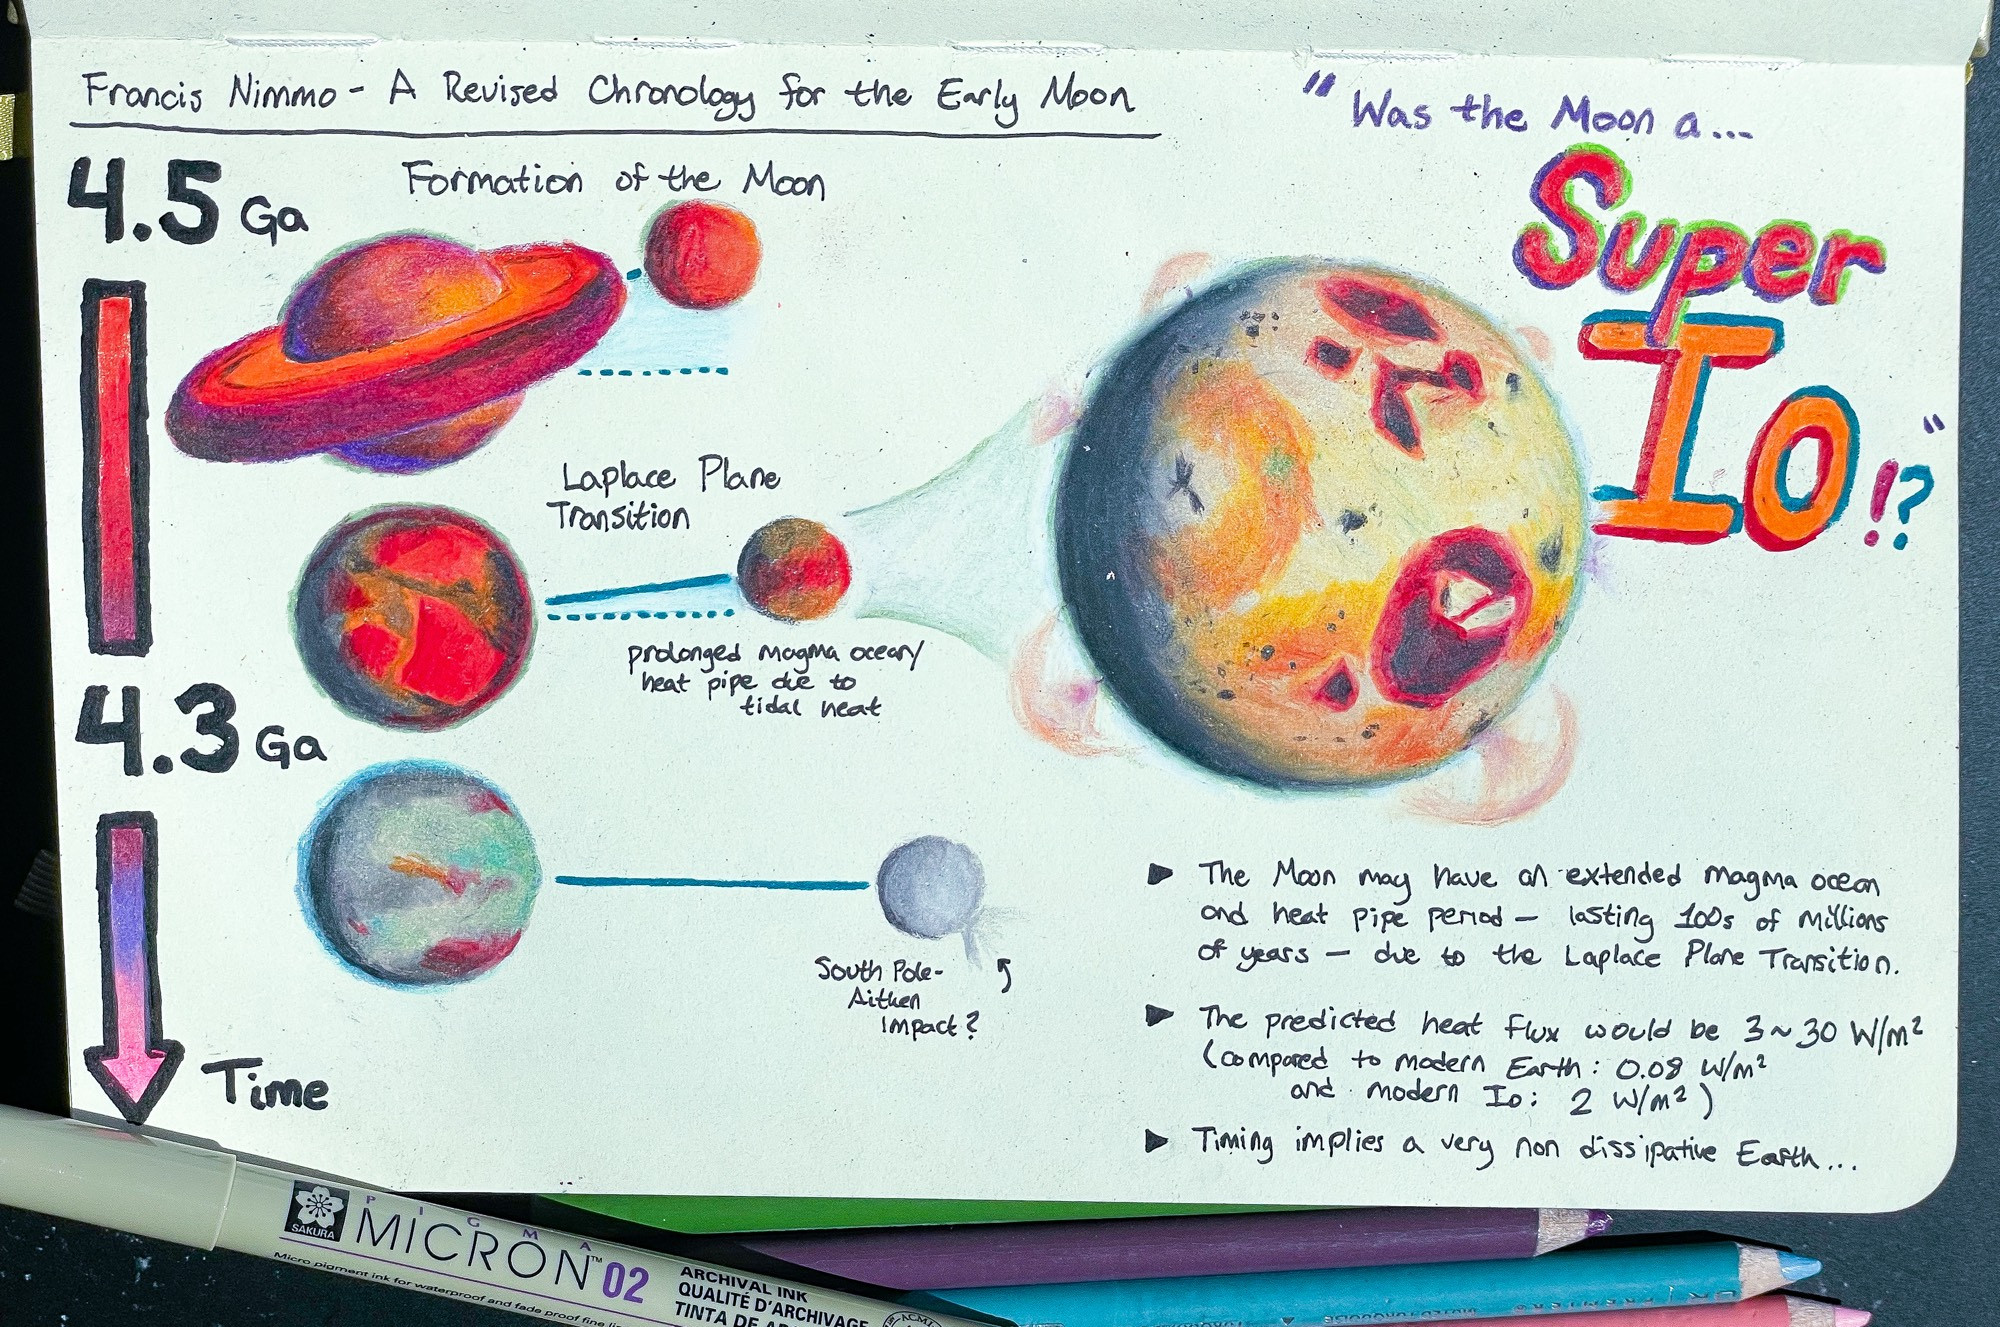 Francis Nimmo - A Revised Chronology for the Early Moon
"Was the Moon a...
Super
Io!?"
4.5 Ga
Formation of the Moon
Laplace Plane
Transition
prolonged magma ocean/
heat pipe due to
tidal heat
4.3 Ga
South Pole-
Aitken
Impact?
Time
▶ The Moon may have an extended magma ocean
and heat pipe period — lasting 100s of millions
of years — due to the Laplace Plane Transition.
▶ The predicted heat flux would be 3~30 W/m²
(compared to modern Earth: 0.08 W/m²
and modern Io: 2 W/m²)
▶ Timing implies a very non dissipative Earth...
SAKURA
PIGMA
MICRON™ 02
Micro pigment ink for waterproof and fade proof fine
ARCHIVAL INK
QUALITÉ D'ARCHIVAGE
TINTA DE